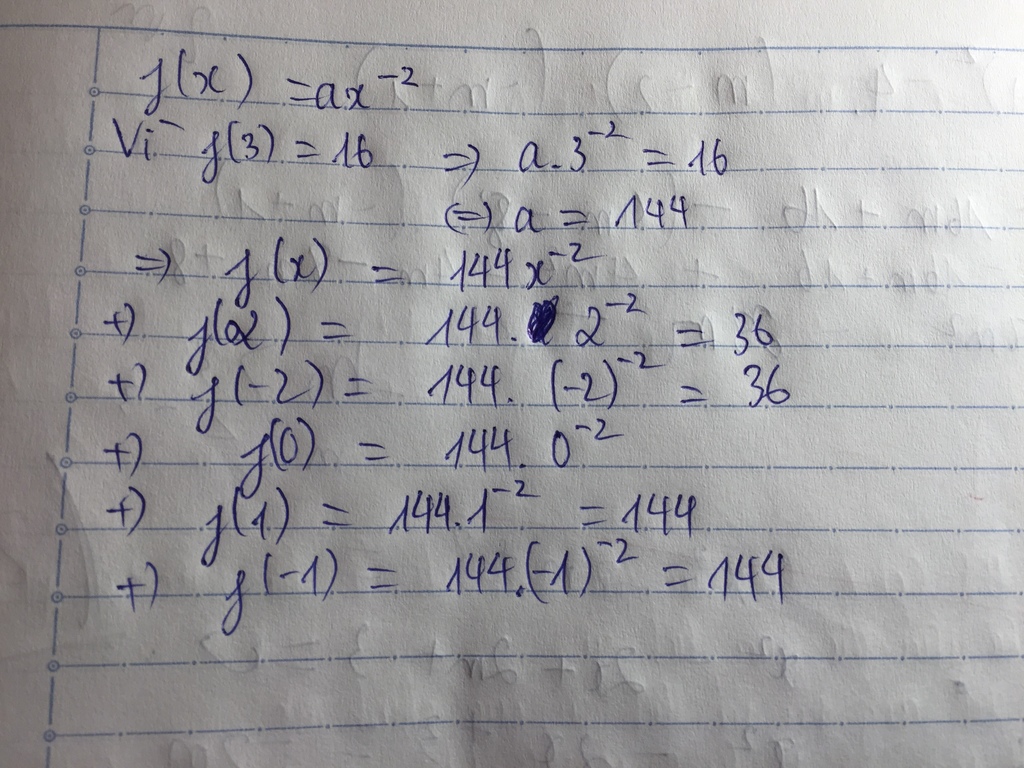 f(x) = ax⁻²
Vì f(3) = 16 => a.3⁻² = 16
(=) a = 144
=> f(x) = 144x⁻²
+) f(2) = 144. 2⁻² = 36
+) f(-2) = 144. (-2)⁻² = 36
+) f(0) = 144. 0⁻²
+) f(1) = 144.1⁻² = 144
+) f(-1) = 144.(-1)⁻² = 144